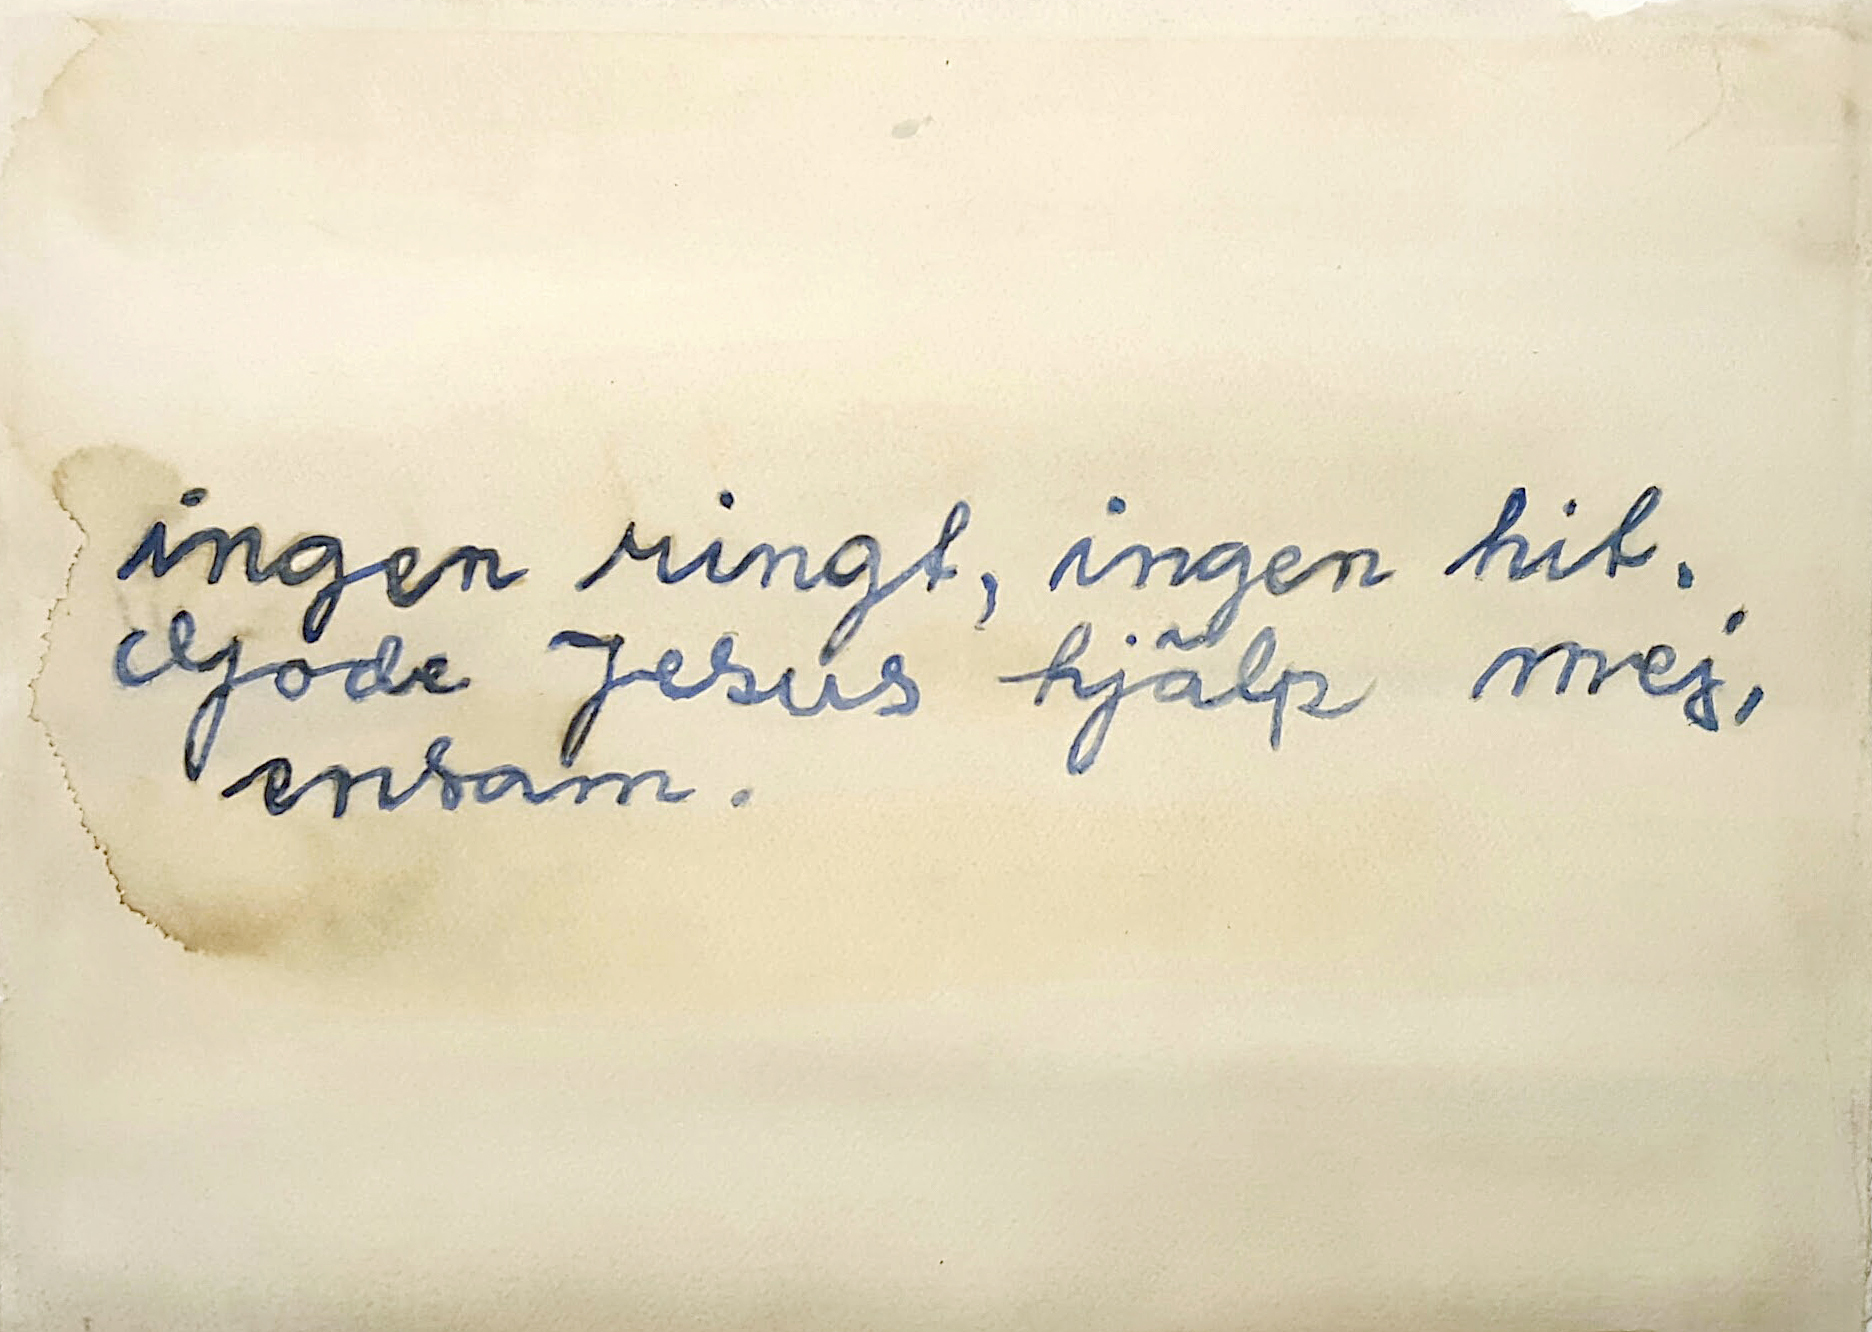 ingen ringt, ingen hit.
Gode Jesus hjälp mej,
ensam.